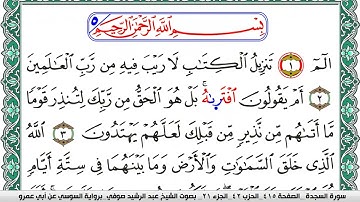 بِسْمِ اللَّهِ الرَّحْمَٰنِ الرَّحِيمِ ٥
الٓمٓ ١ تَنزِيلُ الْكِتَابِ لَا رَيْبَ فِيهِ مِن رَّبِّ الْعَالَمِينَ
٢ أَمْ يَقُولُونَ افْتَرَىٰهُ بَلْ هُوَ الْحَقُّ مِن رَّبِّكَ لِتُنذِرَ قَوْمًا
مَّا أَتَىٰهُم مِّن نَّذِيرٍ مِّن قَبْلِكَ لَعَلَّهُمْ يَهْتَدُونَ ٣ اللَّهُ
الَّذِي خَلَقَ السَّمَاوَاتِ وَالْأَرْضَ وَمَا بَيْنَهُمَا فِي سِتَّةِ أَيَّامٍ
سورة السجدة الصفحة ٤١٥ الحزب ٤٢ الجزء ٢١ بصوت الشيخ عبد الرشيد صوفي برواية السوسي عن أبي عمرو